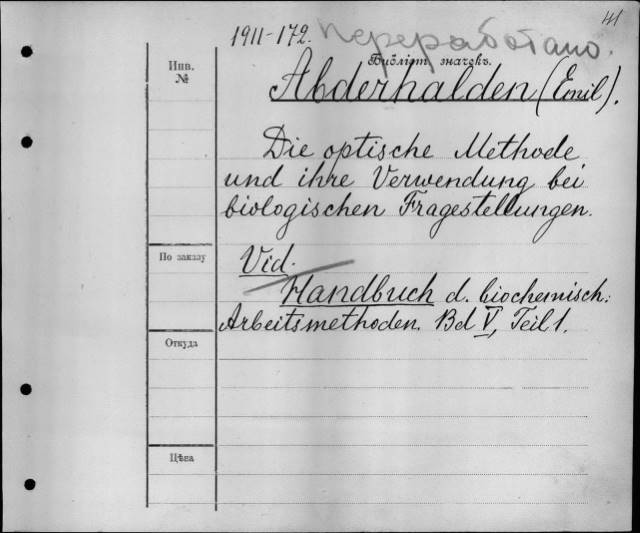 41
1911-172. Переработано.
Библіот. значекъ.
Инв.
№
Abderhalden (Emil).
Die optische Methode
und ihre Verwendung bei
biologischen Fragestellungen.
По заказу
Vid.
Handbuch d. biochemisch.
Arbeitsmethoden. Bd V, Teil 1.
Откуда
Цѣна